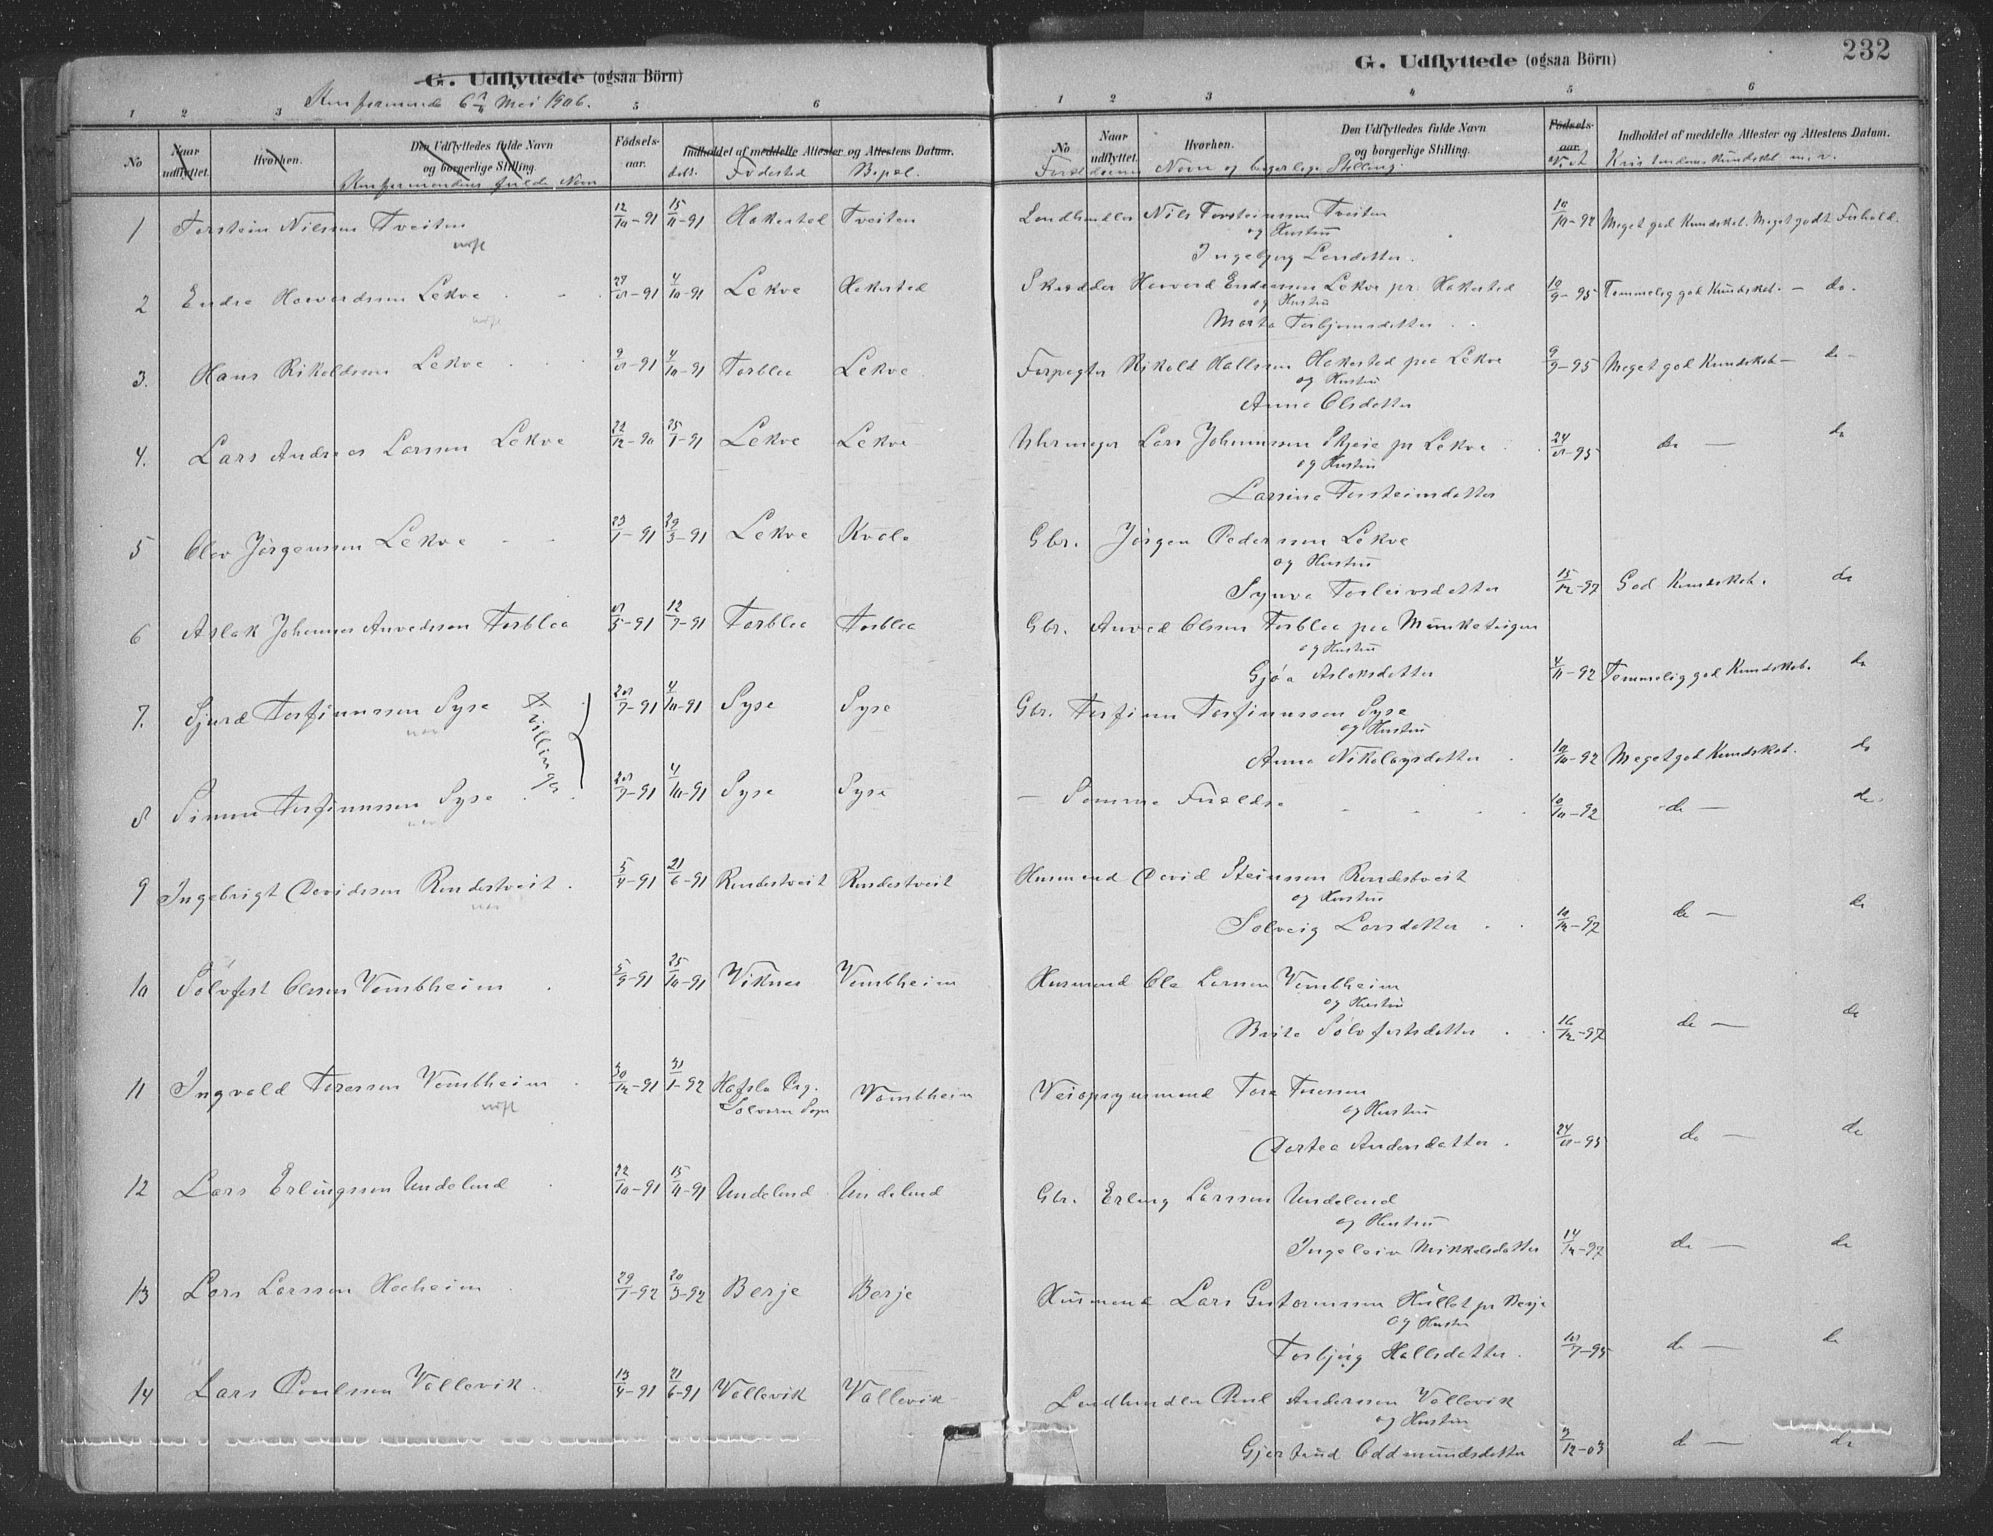 G. Udflyttede (ogsaa Börn)
Konfirmerede 6te Mai 1906.
1 2 3 5 6
No Naar udflyttet. Hvorhen. Den Udflyttedes fulde Navn og borgerlige Stilling. Fødsels-aar. Indholdet af meddelte Attester og Attestens Datum.
Konfirmandens fulde Navn Døbt. Fødested Bopæl.
1 Torstein Nilssen Tveiten 12/10-91 15/11-91 Hakestad Tveiten
2 Endre Havardssen Lekve 27/8-91 4/10-91 Lekve Hakestad
3. Hans Rikoldssen Lekve 9/8-91 4/10-91 Torblaa Lekve
4. Lars Andreas Larssen Lekve 22/12-90 25/1-91 Lekve Lekve
5 Olav Jørgenssen Lekve 23/1-91 29/3-91 Lekve Kvåle
6 Aslak Johannes Anvedssen Torblaa 8/5-91 12/7-91 Torblaa Torblaa
7. Sjurd Torfinnssen Syse 28/7-91 4/10-91 Syse Syse
Tvillinger
8 Simon Torfinnssen Syse 28/7-91 4/10-91 Syse Syse
9 Ingebrigt Davidssen Rondestveit 5/4-91 21/6-91 Rondestveit Rondestveit
10 Sølvfest Olssen Vambheim 5/9-91 25/10-91 Viknes Vambheim
11 Ingvald Toressen Vambheim 30/12-91 31/1-92 Hafslo Prg. Solvorn Sogn Vambheim
12 Lars Erlingssen Undeland 22/10-91 15/11-91 Undeland Undeland
13 Lars Larssen Haaheim 29/1-92 20/3-92 Berje Berje
14 Lars Poulssen Vallavik 13/4-91 21/6-91 Vallavik Vallavik
G. Udflyttede (ogsaa Börn)
232
1 2 3 4 5 6
No Naar udflyttet. Hvorhen. Den Udflyttedes fulde Navn og borgerlige Stilling. Fødsels-aar. Indholdet af meddelte Attester og Attestens Datum.
Forældrenes Navn og borgerlige Stilling Vacc. Kristendomskundskab m. v.
Landhandler Nils Torsteinssen Tveiten 10/10-92 Meget god Kundskab. Meget godt Forhold.
og Hustru
Ingebjørg Larsdatter.
Skrædder Havard Endressen Lekve pr. Hakestad 10/9-95 Temmelig god Kundskab. - do.
og Hustru
Marta Torbjørnsdatter
Forpagter Rikold Hallssen Hakestad paa Lekve 9/9-95 Meget god Kundskab - do -
og Hustru
Anna Olsdatter
Uhrmager Lars Johannssen Skeie pr Lekve 24/8-95 do - do
og Hustru
Larsina Torsteinsdatter
Gbr. Jørgen Pederssen Lekve
og Hustru
Synva Torleivsdatter 15/12-97 God Kundskab. do
Gbr. Anved Olssen Torblaa paa Munketeigen
og Hustru
Gjøa Aslaksdatter 4/11-92 Temmelig god Kundskab. do
Gbr. Torfinn Torfinnssen Syse
og Hustru
Anna Nikolaysdatter 10/10-92 Meget god Kundskab. do
- Samme Forældre 10/10-92 do - do.
Husmand David Steinssen Rondestveit
og Hustru
Solveig Larsdatter 10/12-97 do - do
Husmand Ola Larssen Vambheim
og Hustru
Brita Sølvfestsdatter 16/12-97 do - do
Veiopsynsmand Tore Toressen
og Hustru
Dortea Andersdatter. 24/8-95 do - do
Gbr. Erling Larssen Undeland
og Hustru
Ingeleiv Mikkelsdatter 14/12-97 do - do
Husmand Lars Guttormssen Hullet pr Berje
og Hustru
Torbjørg Hallsdatter. 10/7-95 do - do
Landhandler Poul Anderssen Vallavik
og Hustru
Gjertrud Oddmundsdatter 3/12-03 do - do